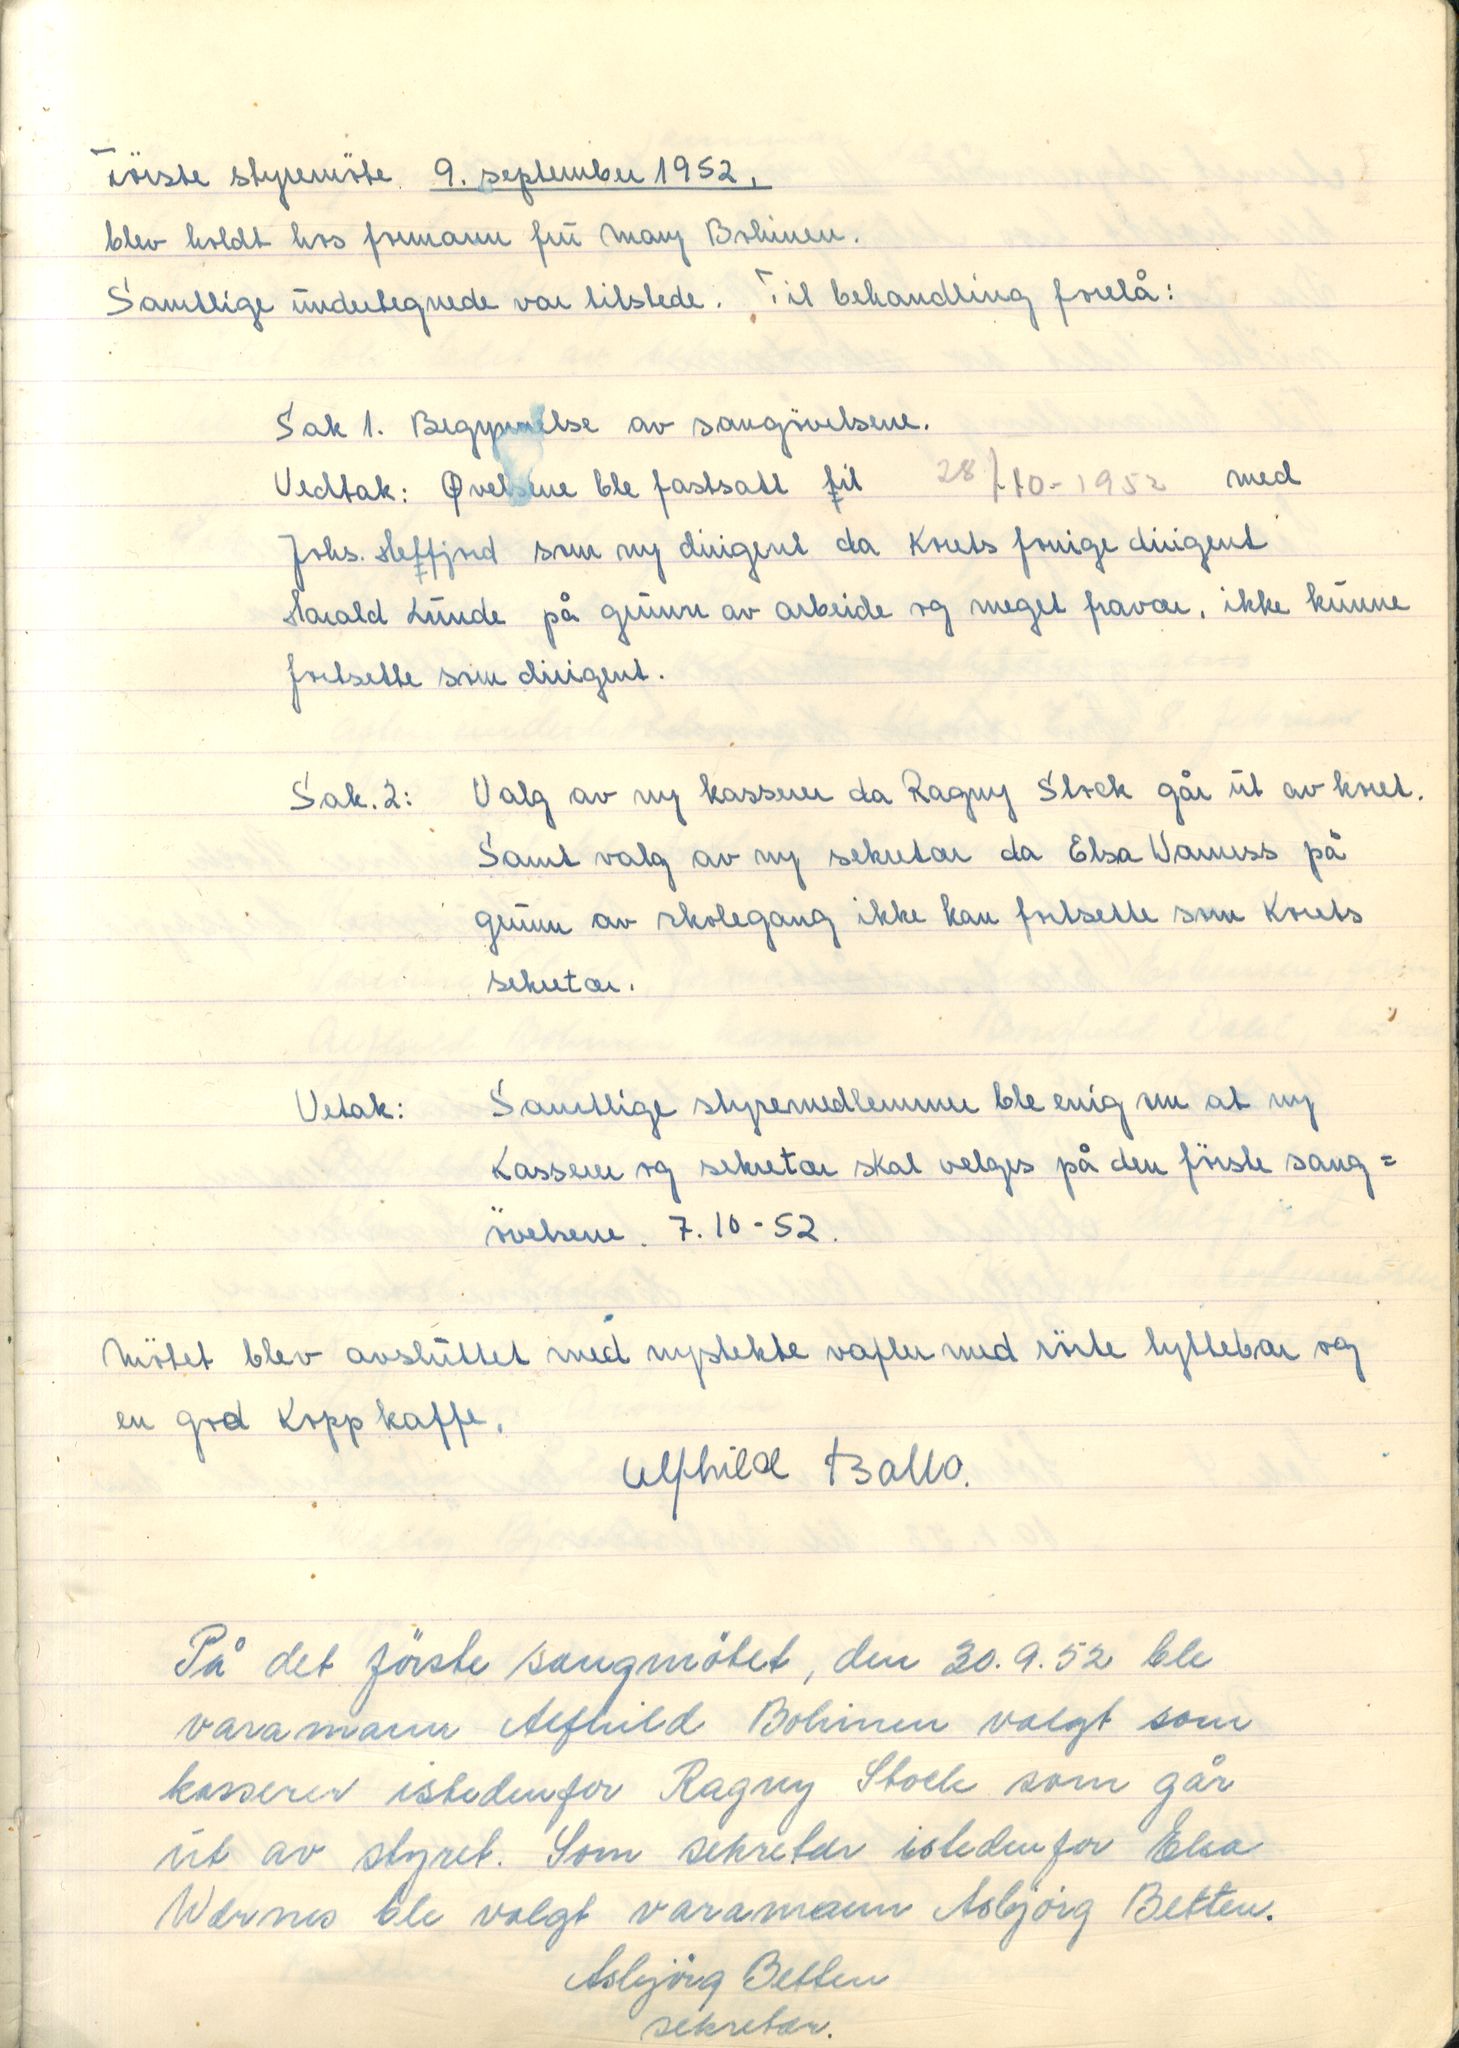 Förste styremöte 9. september 1952.
blev holdt hos formann frü Mary Bohinen.
Samtlige ündertegnede var tilstede. Til behandling forelå:
Sak 1. Begynnelse av sangövelsene.
Vedtak: Øvelsene ble fastsatt til 28/10-1952 med
Johs. Heffjord som ny dirigent da Korets forrige dirigent
Harald Lünde på grünn av arbeide og meget fravær, ikke künne
fortsette som dirigent.
Sak. 2: Valg av ny kasserer da Ragny Stock går üt av koret.
Samt valg av ny sekretær da Elsa Wærness på
grünn av skolegang ikke kan fortsette som Korets
sekretær.
Vetak: Samtlige styremedlemmer ble enig om at ny
Kasserer og sekretær skal velges på den förste sang=
övelsene. 7.10-52.
Mötet blev avslüttet med nystekte vafler med rörte tyttebær og
en god Kopp kaffe.
Alfhild Ballo.
På det förste sangmötet, den 30.9.52 ble
varamann Alfhild Bohinen valgt som
kasserer istedenfor Ragny Stock som går
üt av styret. Som sekretær istedenfor Elsa
Wærnes ble valgt varamann Asbjörg Betten.
Asbjörg Betten
sekretær.